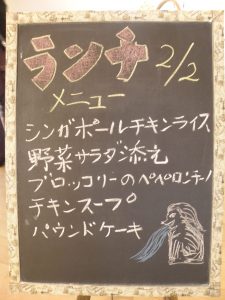 ランチ 2/2
メニュー
シンガポールチキンライス
野菜サラダ添え
ブロッコリーのペペロンチーノ
チキンスープ
パウンドケーキ